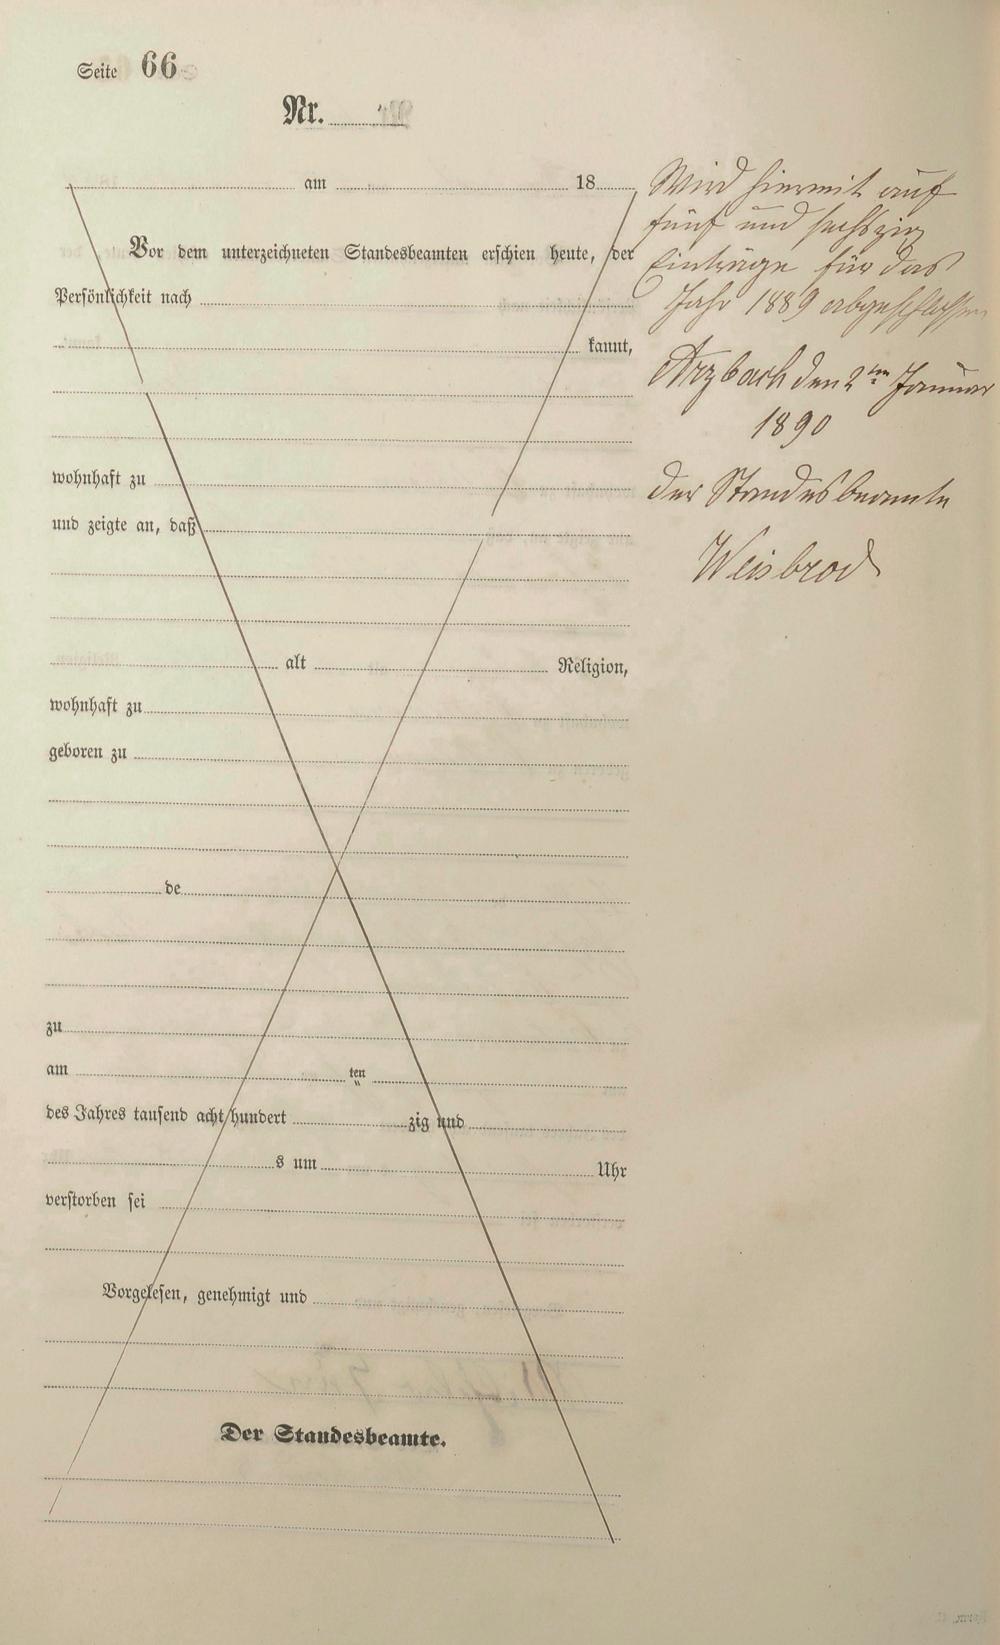 Seite 66
Nr.
am 18
Vor dem unterzeichneten Standesbeamten erschien heute, der
Persönlichkeit nach
kannt,
wohnhaft zu
und zeigte an, daß
alt Religion,
wohnhaft zu
geboren zu
de
zu
am ten
des Jahres tausend acht hundert zig und
s um Uhr
verstorben sei
Vorgelesen, genehmigt und
Der Standesbeamte.
Wird hiermit auf
fünf und sechszig
Einträge für das
Jahr 1889 abgeschlossen
Arzbach den 2ten Januar
1890
der Standesbeamte
Weisbrod